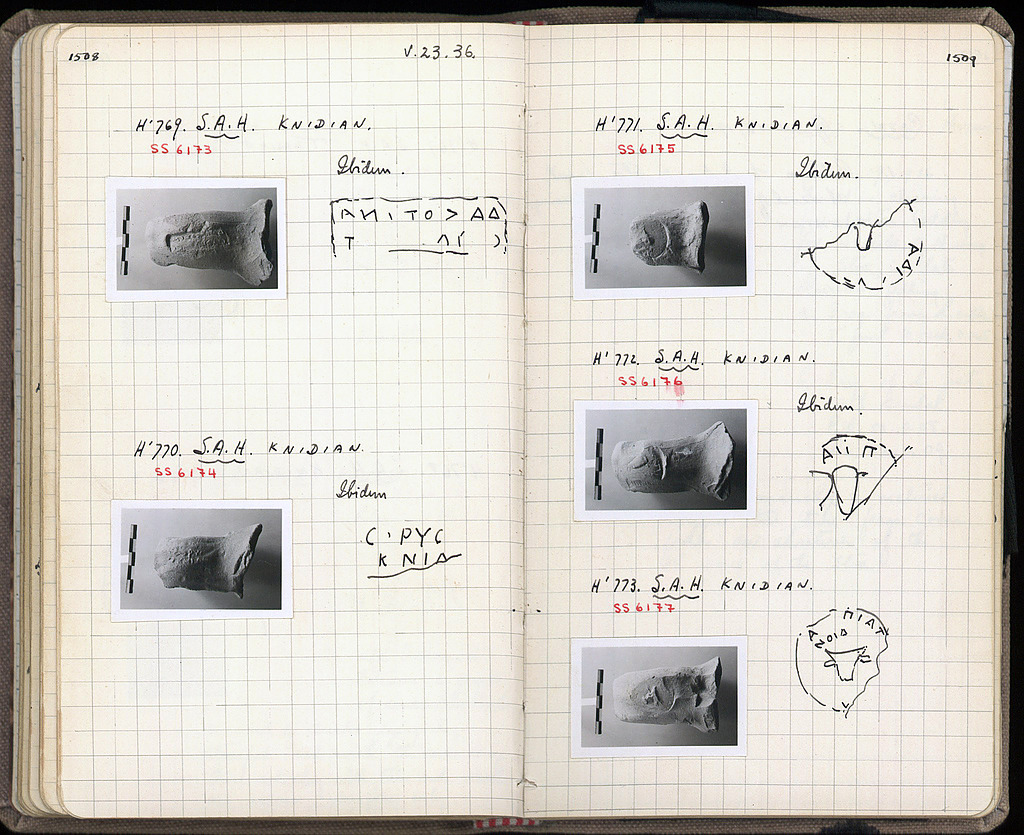 1508
V.23.36.
H'769. S.A.H. KNIDIAN.
SS 6173
Ibidem.
H'770. S.A.H. KNIDIAN.
SS 6174
Ibidem
C · PYC
KNIΔ
1509
H'771. S.A.H. KNIDIAN.
SS 6175
Ibidem.
H'772. S.A.H. KNIDIAN.
SS 6176
Ibidem.
H'773. S.A.H. KNIDIAN.
SS 6177